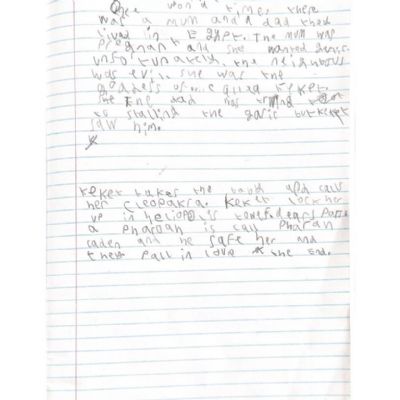 Once a time there
was a mum and a dad they
lived in Egypt. The mum was
pregnant and she wanted
unfortunately the neighbour
was evil she was the
goddess
she the dad was
to stalling the garlic but Keket
saw him.
Keket takes the baby and call
her Cleopakra. Keket lock her
up in heliopolis passe
a pharoah is call Pharoah
caden and he safe her and
they fall in love the End.